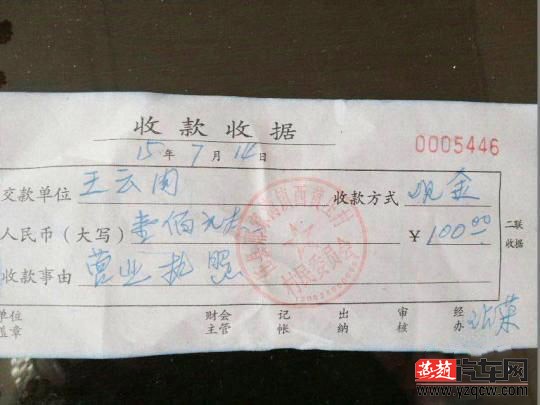 收款收据
0005446
15年7月14日
交款单位 王云肉 收款方式 现金
人民币(大写)壹佰元 ¥100.00
二联 收据
收款事由 营业执照
村民委员会
单位 财会 记 出 审 经
盖章 主管 帐 纳 核 办
燕赵汽车网
www.yzqcw.com